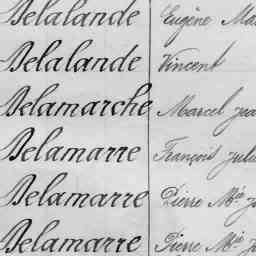 Delalande Eugène Ma
Delalande Vincent
Delamarche Marcel
Delamarre François Jule
Delamarre Pierre Mie
Delamarre Pierre Mie